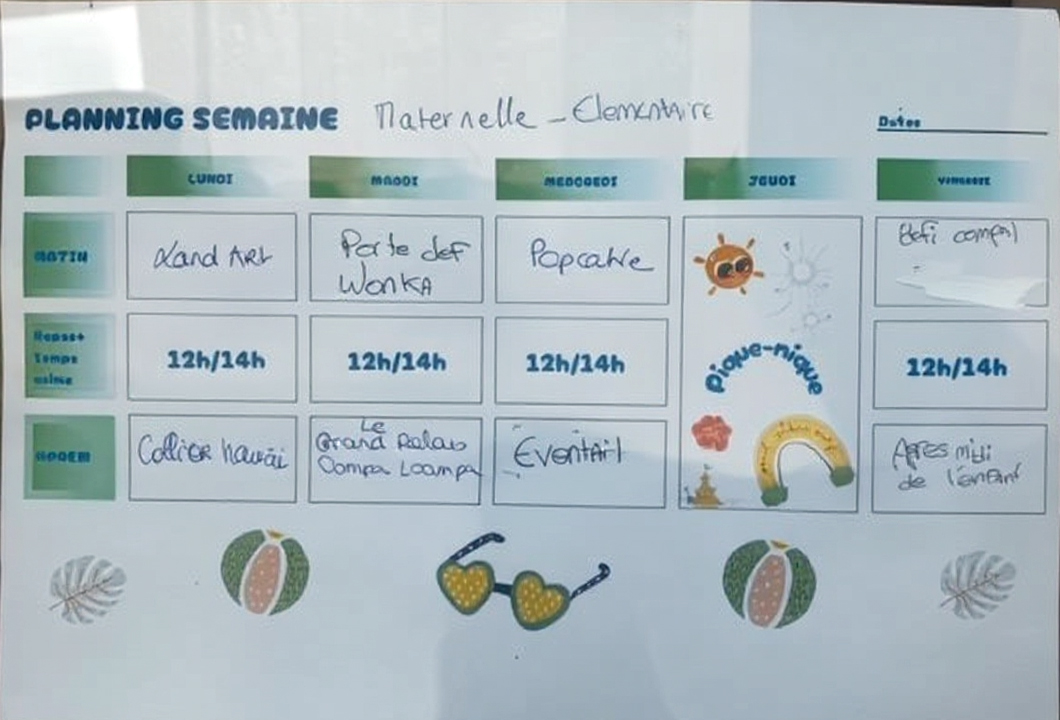 PLANNING SEMAINE Maternelle - Elementaire
Dates
LUNDI MARDI MERCREDI JEUDI VENDREDI
MATIN
Land ART
Porte clef
Wonka
Popcake
Défi
Repas+
Temps
calme
12h/14h 12h/14h 12h/14h 12h/14h
Pique-nique
APREM
Collier hawaï
Le
Grand Relais
Oompa Loompa
Éventail
Apres midi
de l'enfant